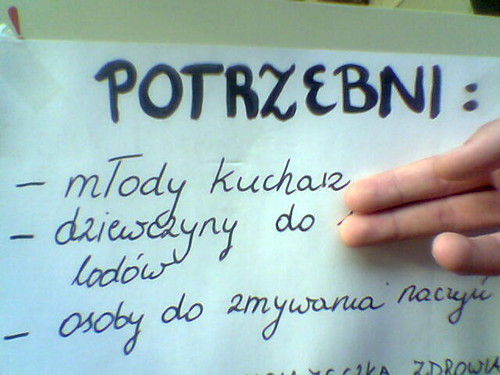 POTRZEBNI:
– młody kucharz
– dziewczyny do
lodów
– osoby do zmywania naczyń
ZDROWIA